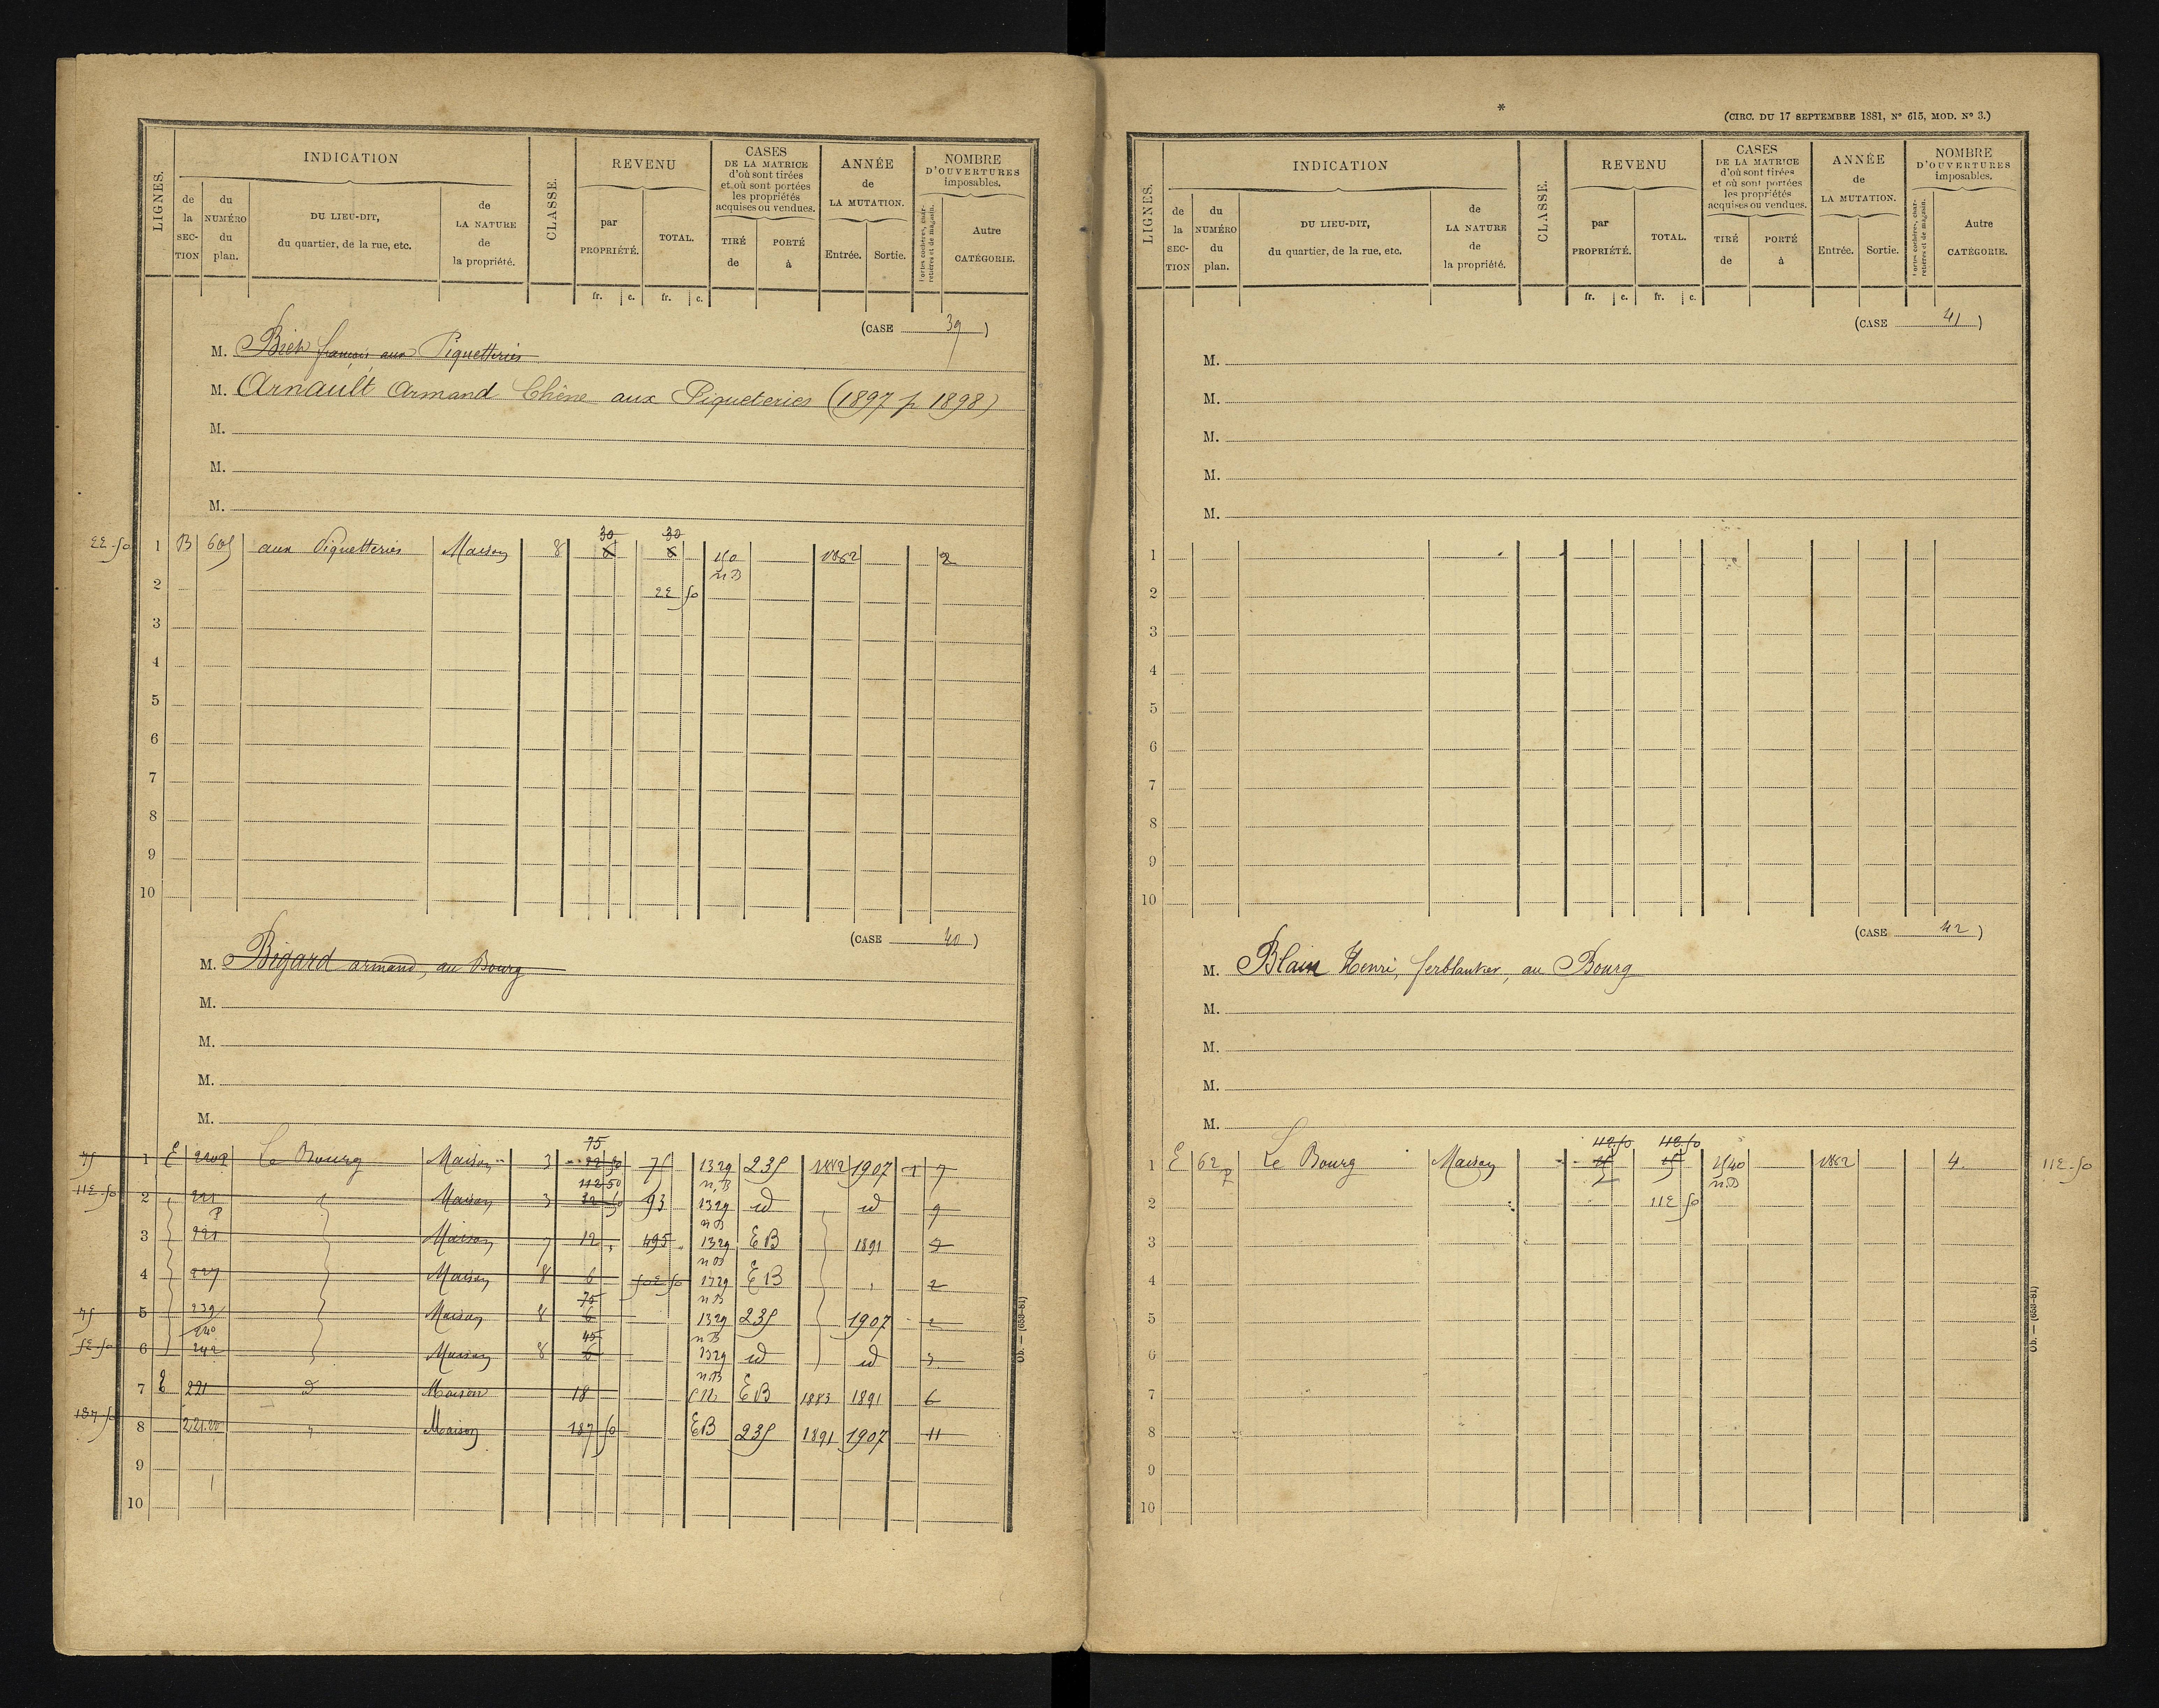 LIGNES.
INDICATION
de la SEC-TION
du NUMÉRO du plan.
DU LIEU-DIT, du quartier, de la rue, etc.
de LA NATURE de la propriété.
CLASSE.
REVENU
par PROPRIÉTÉ.
TOTAL.
fr. c. fr. c.
CASES DE LA MATRICE d'où sont tirées et où sont portées les propriétés acquises ou vendues.
TIRÉ de
PORTÉ à
ANNÉE de LA MUTATION.
Entrée. Sortie.
NOMBRE D'OUVERTURES imposables.
Portes cochères, charretières et de magasin.
Autre CATÉGORIE.
(CASE 39)
M. françois aux Piquetteries
M. Arnault Armand Chêne aux Piqueteries (1897 p 1898)
M.
M.
M.
30 30
1 B 605 aux Piquetteries Maison 8 2
n B
2
3
4
5
6
7
8
9
10
(CASE 40)
M. Bigard armand, au Bourg
M.
M.
M.
M.
75
75 1 E Le Bourg Maison 3 75 1329 235 1882 1907 1 7
n.B
112 50
2 Maison 3 93 1329 id id 9
n B
3 221 Maison 7 12 495 1329 EB 1891
n B
4 227 Maison 8 6 1329 EB 2
n B
75
75 5 239 Maison 8 6 1329 235 1907 2
240
n B
45
6 242 Maison 8 6 1329 id id
n.B
7 E 221 d Maison 18 CN EB 1883 1891 6
187 50 8 Maison 187 50 EB 235 1891 1907 11
9
10
Ob. — (653-81)
*
(CIRC. DU 17 SEPTEMBRE 1881, N° 615, MOD. N° 3.)
LIGNES.
INDICATION
de la SEC-TION
du NUMÉRO du plan.
DU LIEU-DIT, du quartier, de la rue, etc.
de LA NATURE de la propriété.
CLASSE.
REVENU
par PROPRIÉTÉ.
TOTAL.
fr. c. fr. c.
CASES DE LA MATRICE d'où sont tirées et où sont portées les propriétés acquises ou vendues.
TIRÉ de
PORTÉ à
ANNÉE de LA MUTATION.
Entrée. Sortie.
NOMBRE D'OUVERTURES imposables.
Portes cochères, charretières et de magasin.
Autre CATÉGORIE.
(CASE 41)
M.
M.
M.
M.
M.
1
2
3
4
5
6
7
8
9
10
(CASE 42)
M. Blain Henri, ferblantier, au Bourg
M.
M.
M.
M.
1 E 62 p Le Bourg Maison 1540 1882 4
n.B
2
3
4
5
6
7
8
9
10
Ob. — (653-81)